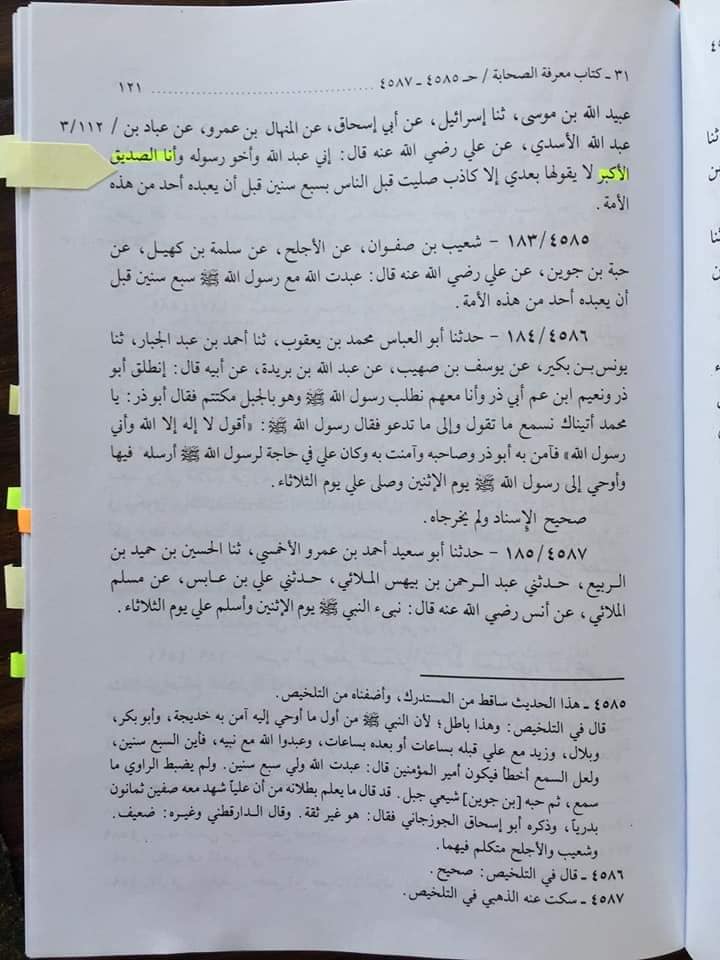 ٣١ ـ كتاب معرفة الصحابة / حـ ٤٥٨٥ ـ ٤٥٨٧ ........................ ١٢١
عبيد الله بن موسى، ثنا إسرائيل، عن أبي إسحاق، عن المنهال بن عمرو، عن عباد بن / ٣/١١٢
عبد الله الأسدي، عن علي رضي الله عنه قال: إني عبد الله وأخو رسوله وأنا الصديق
الأكبر لا يقولها بعدي إلا كاذب صليت قبل الناس بسبع سنين قبل أن يعبده أحد من هذه
الأمة.
١٨٣/٤٥٨٥ - شعيب بن صفوان، عن الأجلح، عن سلمة بن كهيل، عن
حبة بن جوين، عن علي رضي الله عنه قال: عبدت الله مع رسول الله ﷺ سبع سنين قبل
أن يعبده أحد من هذه الأمة.
١٨٤/٤٥٨٦ - حدثنا أبو العباس محمد بن يعقوب، ثنا أحمد بن عبد الجبار، ثنا
يونس بن بكير، عن يوسف بن صهيب، عن عبد الله بن بريدة، عن أبيه قال: إنطلق أبو
ذر ونعيم ابن عم أبي ذر وأنا معهم نطلب رسول الله ﷺ وهو بالجبل مكتتم فقال أبو ذر: يا
محمد أتيناك نسمع ما تقول وإلى ما تدعو فقال رسول الله ﷺ: «أقول لا إله إلا الله وأني
رسول الله» فآمن به أبو ذر وصاحبه وآمنت به وكان علي في حاجة لرسول الله ﷺ أرسله فيها
وأوحي إلى رسول الله ﷺ يوم الإثنين وصلى علي يوم الثلاثاء.
صحيح الإسناد ولم يخرجاه.
١٨٥/٤٥٨٧ - حدثنا أبو سعيد أحمد بن عمرو الأخمسي، ثنا الحسين بن حميد بن
الربيع، حدثني عبد الرحمن بن بيهس الملائي، حدثني علي بن عابس، عن مسلم
الملائي، عن أنس رضي الله عنه قال: نبىء النبي ﷺ يوم الإثنين وأسلم علي يوم الثلاثاء.
٤٥٨٥ ـ هذا الحديث ساقط من المستدرك، وأضفناه من التلخيص.
قال في التلخيص: وهذا باطل؛ لأن النبي ﷺ من أول ما أوحي إليه آمن به خديجة، وأبو بكر،
وبلال، وزيد مع علي قبله بساعات أو بعده بساعات، وعبدوا الله مع نبيه، فأين السبع سنين،
ولعل السمع أخطأ فيكون أمير المؤمنين قال: عبدت الله ولي سبع سنين. ولم يضبط الراوي ما
سمع، ثم حبه [بن جوين] شيعي جبل. قد قال ما يعلم بطلانه من أن علياً شهد معه صفين ثمانون
بدرياً، وذكره أبو إسحاق الجوزجاني فقال: هو غير ثقة. وقال الدارقطني وغيره: ضعيف.
وشعيب والأجلح متكلم فيهما.
٤٥٨٦ ـ قال في التلخيص: صحيح.
٤٥٨٧ ـ سكت عنه الذهبي في التلخيص.